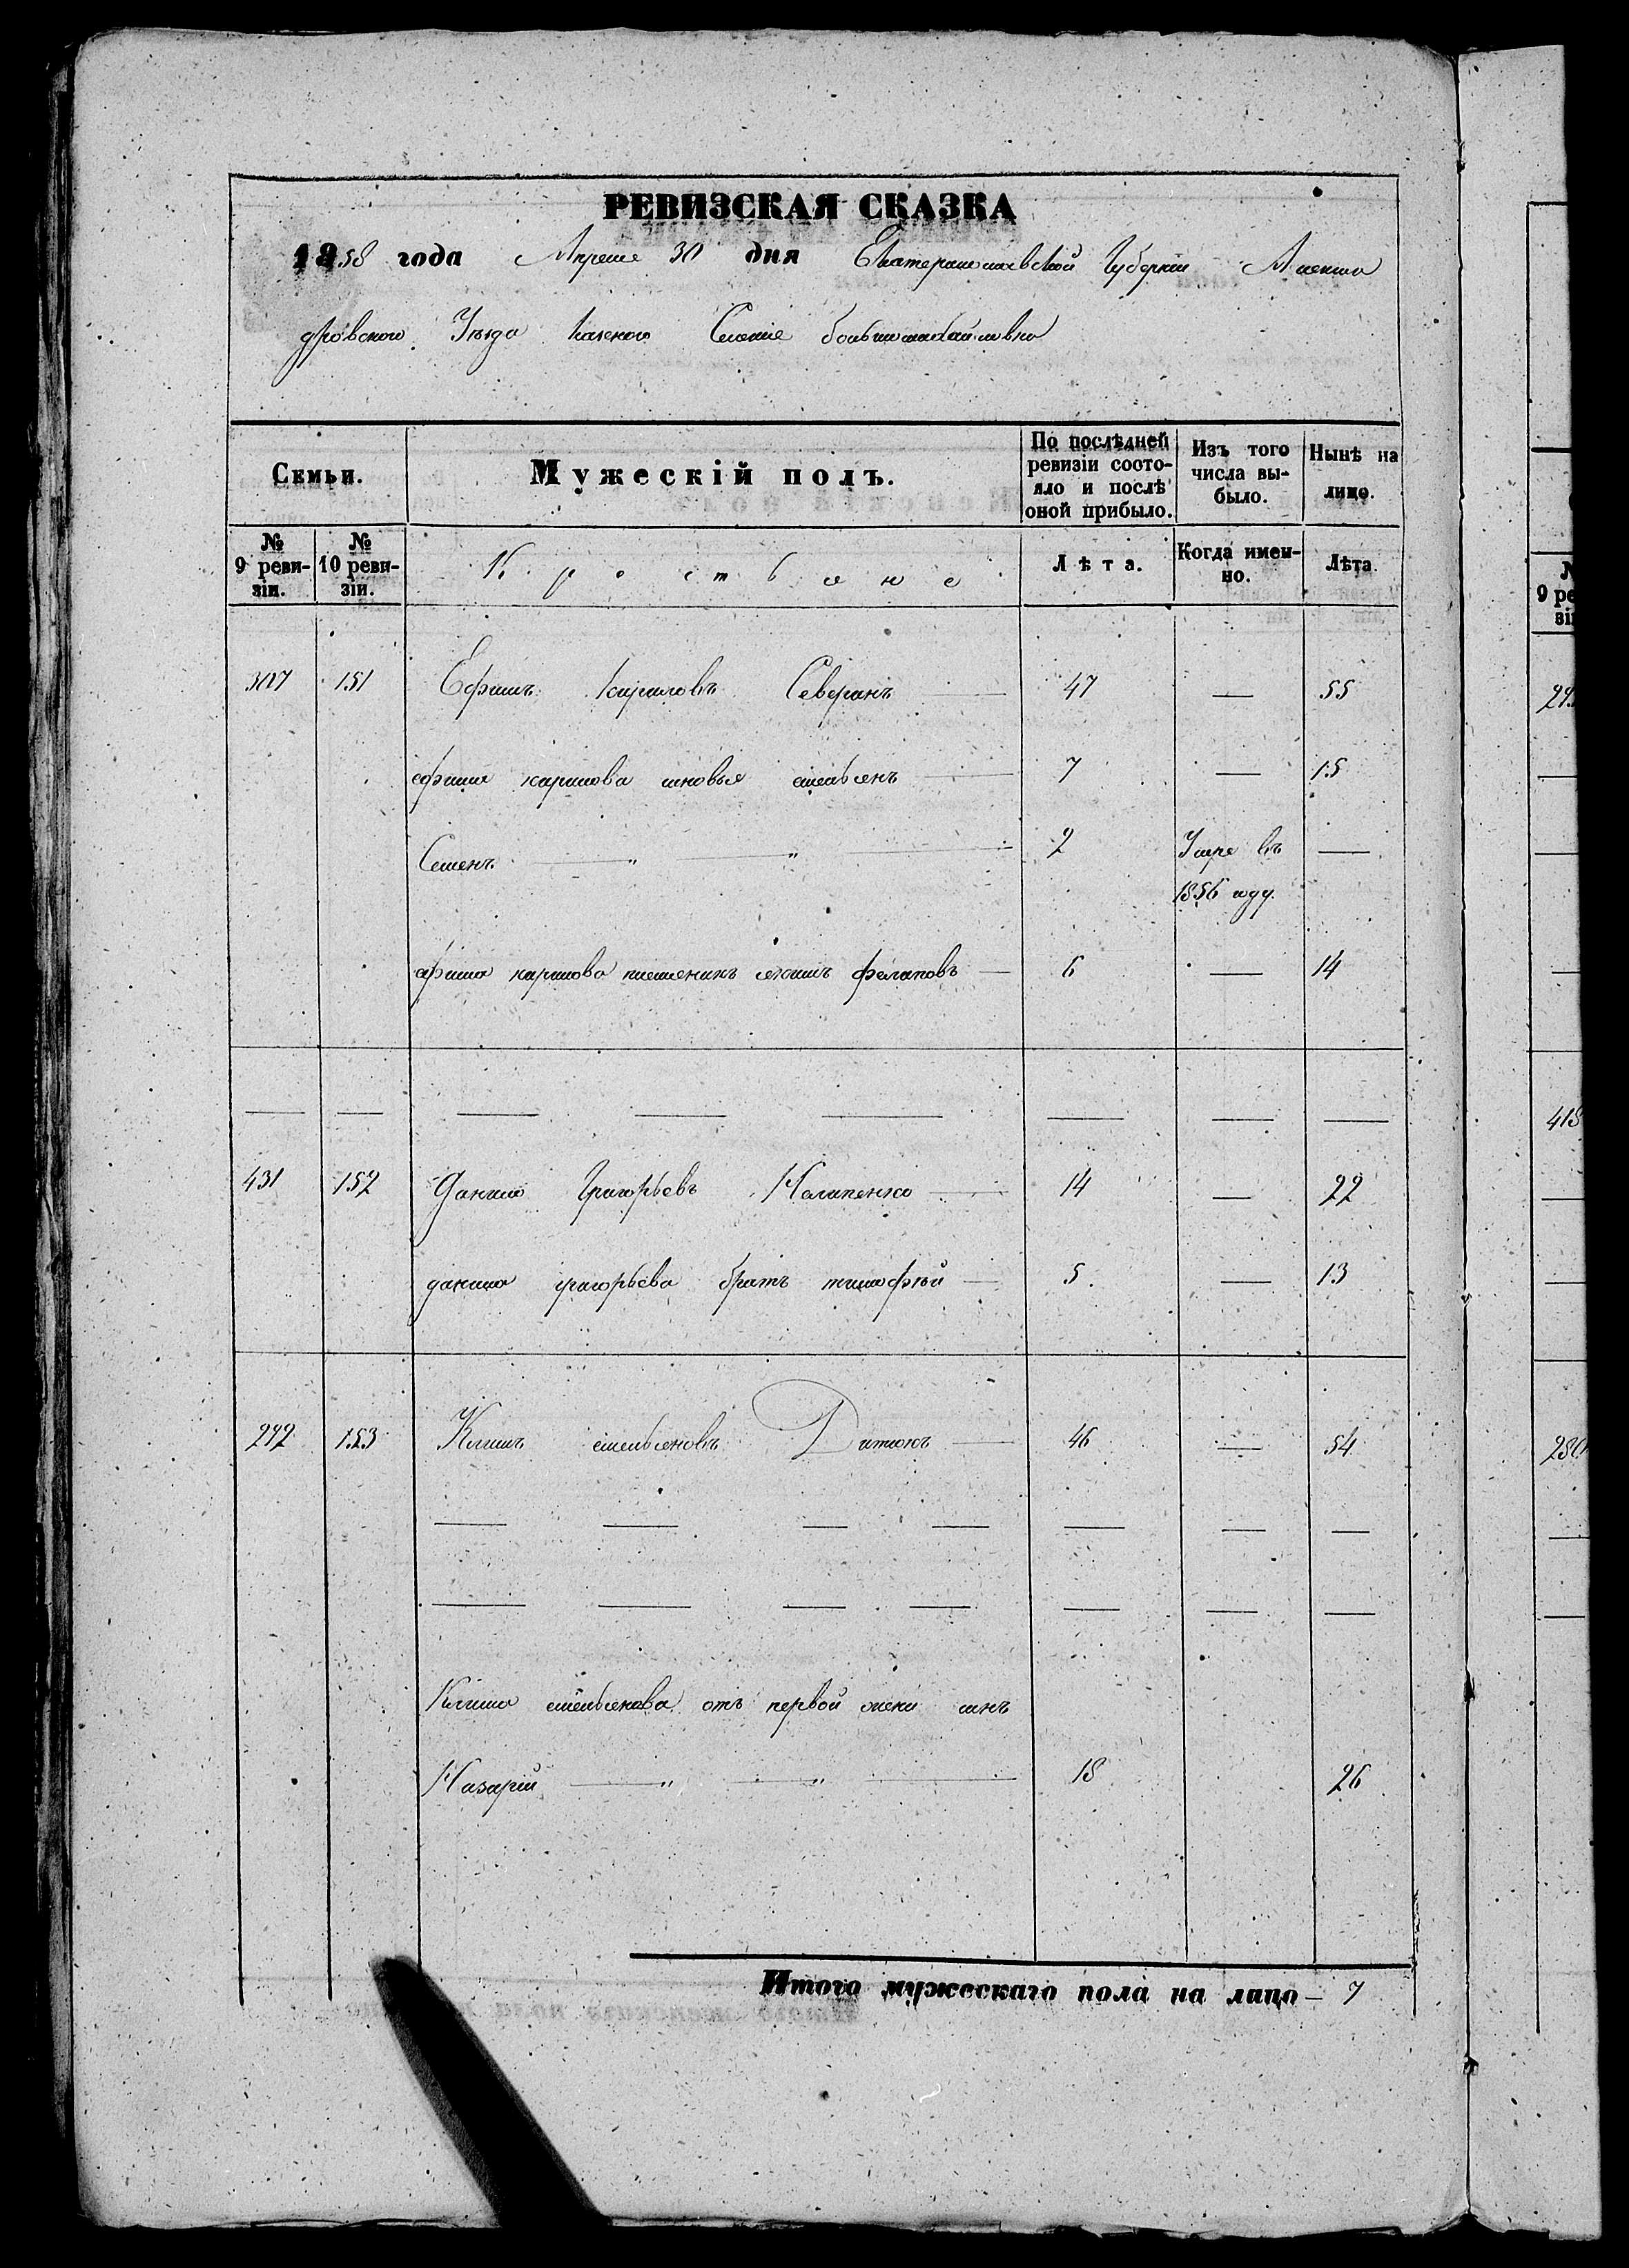 РЕВИЗСКАЯ СКАЗКА
1858 года Апреле 30 дня Екатеринославской Губернии Алексан
дровского Уѣзда Казеного Селение большемихайловки
Семьи.
Мужескій полъ.
По послѣдней ревизіи состояло и послѣ оной прибыло.
Изъ того числа выбыло.
Нынѣ на лицо.
№ 9 ревизіи.
№ 10 ревизіи.
Крестьяне
Лѣта.
Когда именно.
Лѣта.
307 151 Ефимъ Кириловъ Северинъ 47 — 55
ефима кирилова сновья емельянъ 7 — 15
Семенъ — " — " — 2 Умре въ —
1856 году.
ефима кирилова племеникъ екимъ филиповъ — 6 — 14
431 152 Данило Григорьевъ Налапенко — 14 — 22
данила григорьева братъ тимофѣй — 5 — 13
292 153 Климъ емельяновъ Дитюкъ — 46 — 54
Клима емельянова отъ первой жени синъ
Назарій — " — " — 18 26
Итого мужескаго пола на лицо — 7
№
9 ре
зі
29
418
280